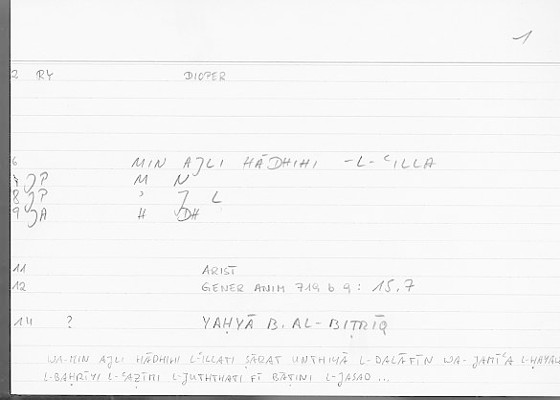 1
2 RY DIOPER
6 MIN AJLI HĀDHIHI -L-ʿILLA
7 JP M N
8 JP ʾ J L
9 JA H DH
11 ARIST
12 GENER ANIM 719 b 9 : 15,7
14 ? YAḤYĀ B. AL-BIṬRĪQ
WA-MIN AJLI HĀDHIHI L-ʿILLATI ṢĀRAT UNTHIYĀ L-DALĀFĪN WA-JAMĪʿA L-ḤAYAW
L-BAḤRĪYI L-ʿAẒĪMI L-JUTHTHATI FĪ BĀṬINI L-JASAD ...